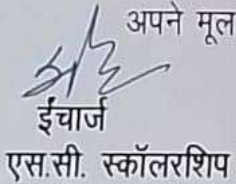 अपने मूल
ईंचार्ज
एस.सी. स्कॉलरशिप